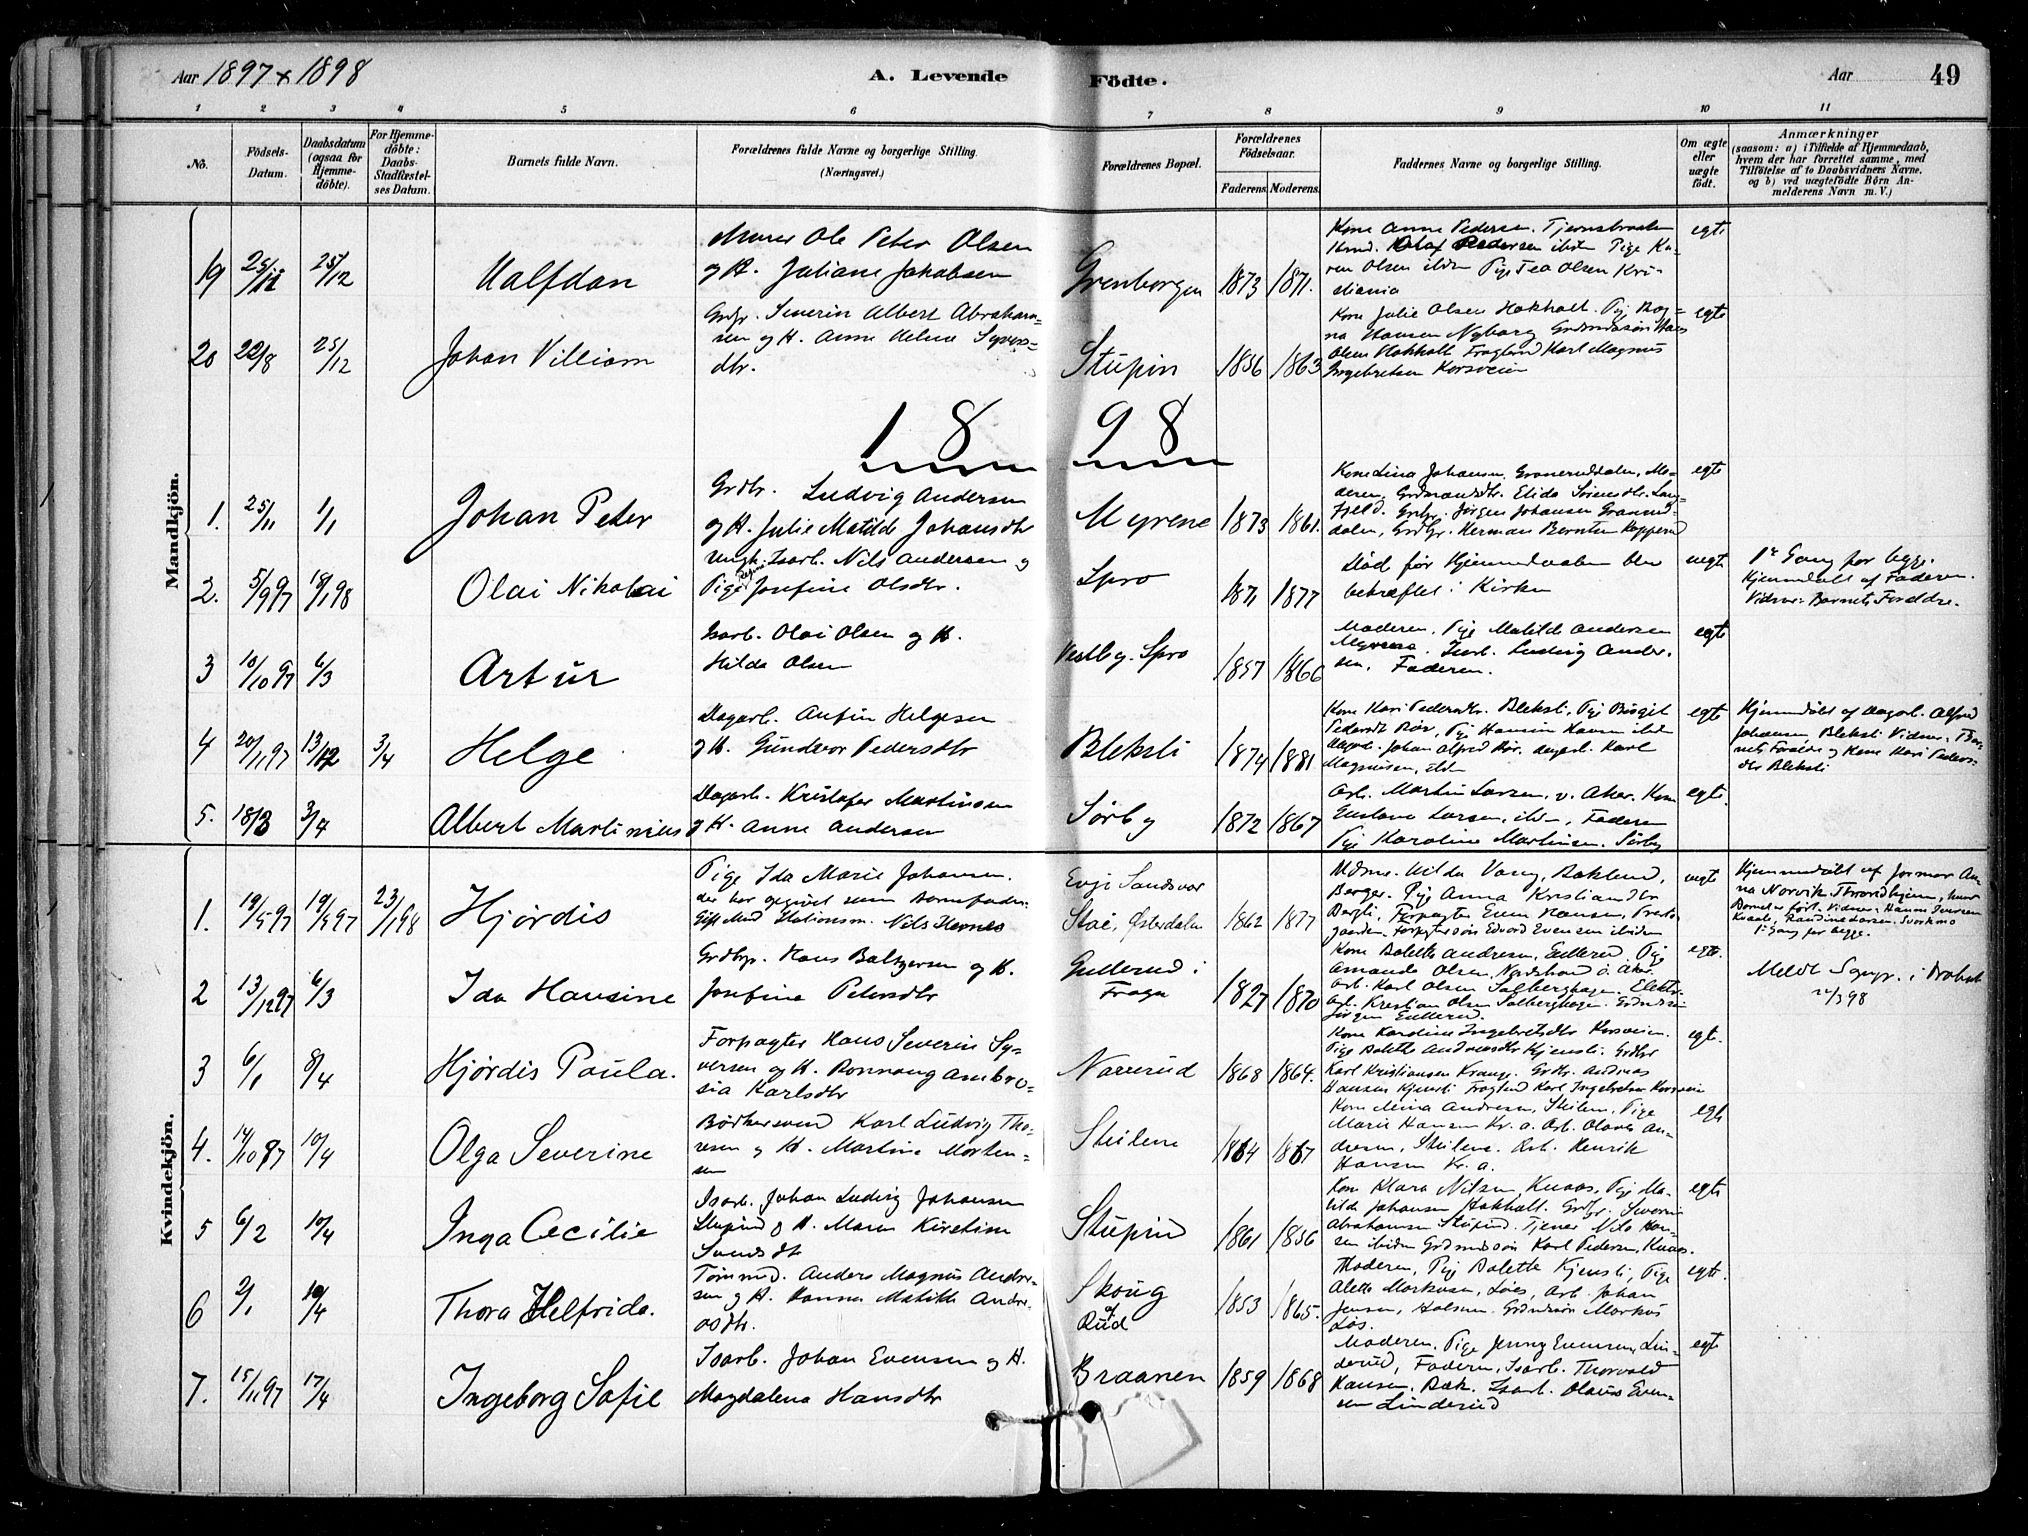 Aar 1897 & 1898
A. Levende Födte.
Aar 49
1 2 3 4 5 6 7 8 9 10 11
No.
Födsels-Datum.
Daabsdatum (ogsaa for Hjemme-döbte).
For Hjemme-döbte: Daabs-Stadfæstel-ses Datum.
Barnets fulde Navn.
Forældrenes fulde Navne og borgerlige Stilling. (Næringsvei.)
Forældrenes Bopæl.
Forældrenes Födselsaar.
Faderens. Moderens.
Faddernes Navne og borgerlige Stilling.
Om ægte eller uægte födt.
Anmærkninger
(saasom: a) i Tilfælde af Hjemmedaab, hvem der har forrettet samme, med Tilföielse af to Daabsvidners Navne, og b) ved uægtefödte Börn An-melderens Navn m. V.)
Mandkjön.
19 25/12 Halfdan
Murer Ole Peter Olsen
og H. Juliane Jakobsen
Grenborgen 1873 1871.
Kone Anne Pedersen. Tjernsbraaten
Olaf Pedersen ibdn Pige Ka-
ren Olsen ibdn Pige Tea Olsen Kri-
stiania
egte
20 22/8 25/12 Johan Villiam
Grdbr. Severin Albert Abraham-
sen og H. Anne Helene Syvers-
dtr.
Stupin 1856 1863
Kone Julie Olsen Hokholt. Pige Rag-
na Hansen Nyborg Grdmndssøn Hans
Olsen Hokholt Karl Magnus
Ingebretsen Korsveien
egte
1898
1. 25/11 1/1 Johan Peter
Grdbr. Ludvig Andersen
og H. Julie Matilde Johansdtr
Myrene 1873 1861.
Kone Lina Johansen, Graneruddalen, Mo-
deren. Elida
Jørgen Johansen Granerud-
dalen, Grdbr. Herman Bernten
egte
2. 5/9 97 18/1 98 Olai Nikolai
Ungk. Isarb. Nils Andersen og
Pige Regine Josefine Olsdtr.
Spro 1871 1877
Død før Hjemmedaaben blev
bekræftet i Kirken
uegte
1ste Gang for begge.
Hjemmedøbt af Faderen.
Vidner: Barnets Forældre.
3 10/10 97 6/3 Artur
Isarb. Olai Olsen og H.
Hilda Olsen
Vestby. Spro 1857 1866
Moderen, Pige Matilde Andersen
Myrene. Isarb. Ludvig Ander-
sen, Faderen.
egte
4 20/1 97 13/12 3/4 Helge
Dagarb. Anfin Helgesen
og H. Gundvor Pedersdtr
Bleksli 1874 1881
Kone Kari Pedersdtr. Bleksli, Pige Birgit
Pedersdtr Rør, Pige Hansine Hansen ibdn
Dagarb. Johan Alfred Rør. Dagarb. Karl
Magnusen, ibdn
egte
Hjemmedøbt af Dagarb. Alfred
Johansen, Bleksli Vidner: Bar-
nets Forældre og Kone Kari Peders-
dtr Bleksli
5. 18/3 3/4 Albert Martinius
Dagarb. Kristofer Martinsen
og H. Anne Andersen
Sørby 1872 1867
Arb. Martin Larsen, v. Aker. Kone
Gustava Larsen, ibdn, Faderen
Pige Karoline Martinsen. Sørby
egte.
Kvindekjön.
1. 19/5 97 19/5 97 23/1 98 Hjørdis
Pige Ida Marie Johansen.
der har opgivet som Barnefader:
Gift Mand Stationsm. Nils Hernes
Evje Sandsvær
Stai, Østerdalen 1862 1877
Hilda Vang, Bakland,
Berger. Pige Anna Kristiansdtr
Forpagter Even Hansen, Preste-
gaarden. Forpagtersøn Edvard Evensen ibidem
uegte
Hjemmedøbt af Jormor An-
na Norvik. Throndhjem, hvor
Barnet er født. Vidner: Hanna Iversen
Kvaale, Randine Larsen, Svorkmo
1ste Gang for begge.
2 13/12 97 6/3 Ida Hansine
Grdbr. Hans Baltzersen og H.
Josefine Petersdtr
Gullerud i
Frogn 1827 1870
Kone Bolette Andresen, Gullerud. Pige
Amanda Olsen, Nordstrand v. Aker.
Arb. Karl Olsen Solberghagen. Elektr.
Arb. Kristian Olsen Solberghagen. Grdmndssøn
Jørgen Gullerud.
egte.
Meldt Sognepr. i Drøbak
22/3 98
3 6/1 8/4 Hjørdis Paula.
Forpagter Hans Severin Sy-
versen og H. Ronnaug Ambro-
sia Karlsdtr
Narverud 1868 1864.
Kone Karoline Ingebretsdtr Korsveien.
Pige Bolette Andreasdtr Kjensli. Grdbr
Karl Kristiansen Krange. Grdbr. Andreas
Hansen Kjensli Karl Ingebretsen Korsveien
egte.
4. 14/10 97 10/4 Olga Severine
Bødkersvend Karl Ludvig Tho-
resen og H. Martine Morten-
sen
Steilene 1864 1867
Kone Mina Andresen, Steilene, Pige
Marie Hansen Kr. a. Arb. Olaves An-
dresen, Steilene. Arb. Henrik
Hansen Kr. a.
egte
5 6/2 10/4 Inga Cecilie
Isarb. Johan Ludvig Johansen
Stupind og H. Maren Kirstine
Svendsdtr
Stupind 1861 1856
Kone Klara Nilsen, Knaas, Pige Ma-
tilde Johansen Hokholt. Grdbr. Severin
Abrahamsen Stupind. Tjener Nils Han-
sen ibidem Grdmndssøn Karl Pedersen, Knaas.
egte
6 2/1 10/4 Thora Helfrida.
Tømmermd. Anders Magnus Andre-
sen og H. Hanna Matilde Andre-
asdtr.
Skoug
af
Rud 1853 1865.
Moderen, Pige Bolette Kjensli, Pige
Alette Markusen, Løes, Arb. Johan
Jensen, Holmen. Grdmndssøn Markus
Løs.
egte.
7. 15/11 97 17/4 Ingeborg Sofie
Isarb. Johan Evensen og H.
Magdalena Hansdtr
Braanen 1859 1868
Moderen. Pige Jenny Evensen, Lin-
derud, Faderen, Isarb. Thorvald
Hansen. Bæk. Isarb. Olaus Even-
sen Linderud
egte